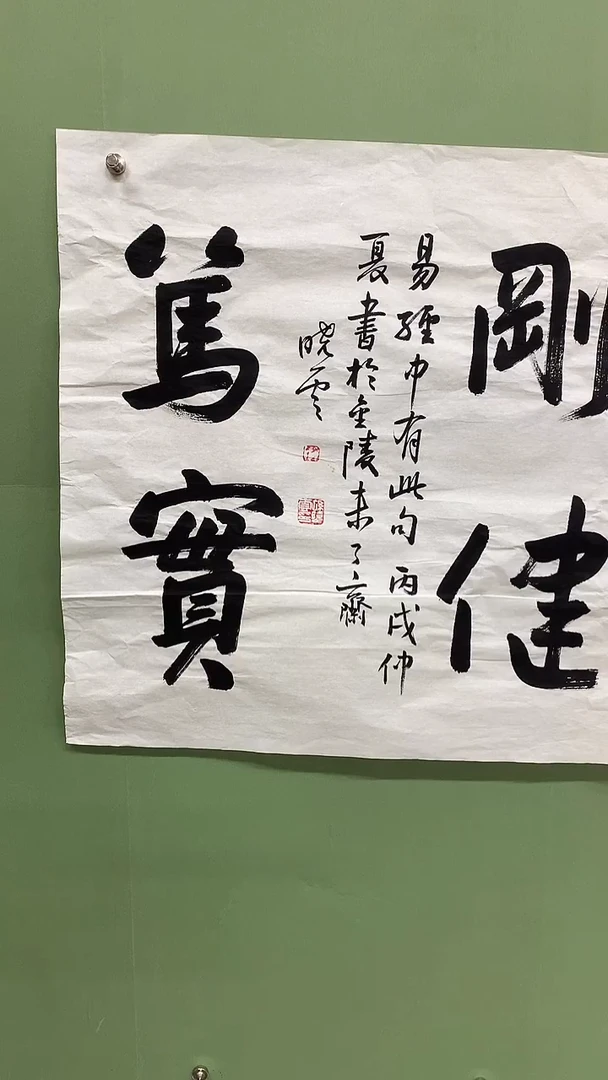 剛健
易經中有此句丙戌仲
夏書於金陵未了齋
曉雲
篤實